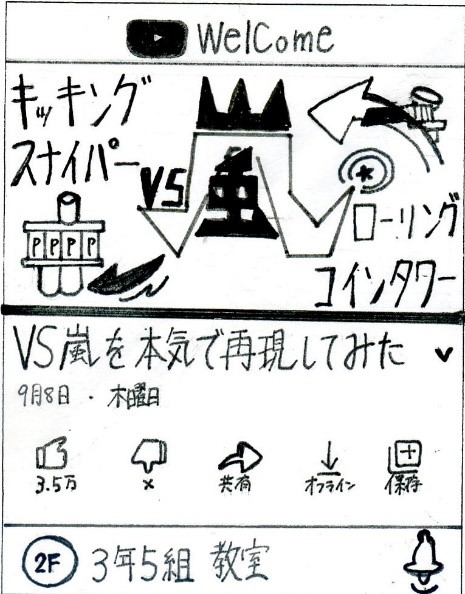 WelCome
キッキング
スナイパー
VS
嵐
ローリング
コインタワー
P P P P
VS嵐を本気で再現してみた
9月8日・木曜日
3.5万
×
共有
オフライン
保存
2F
3年5組 教室